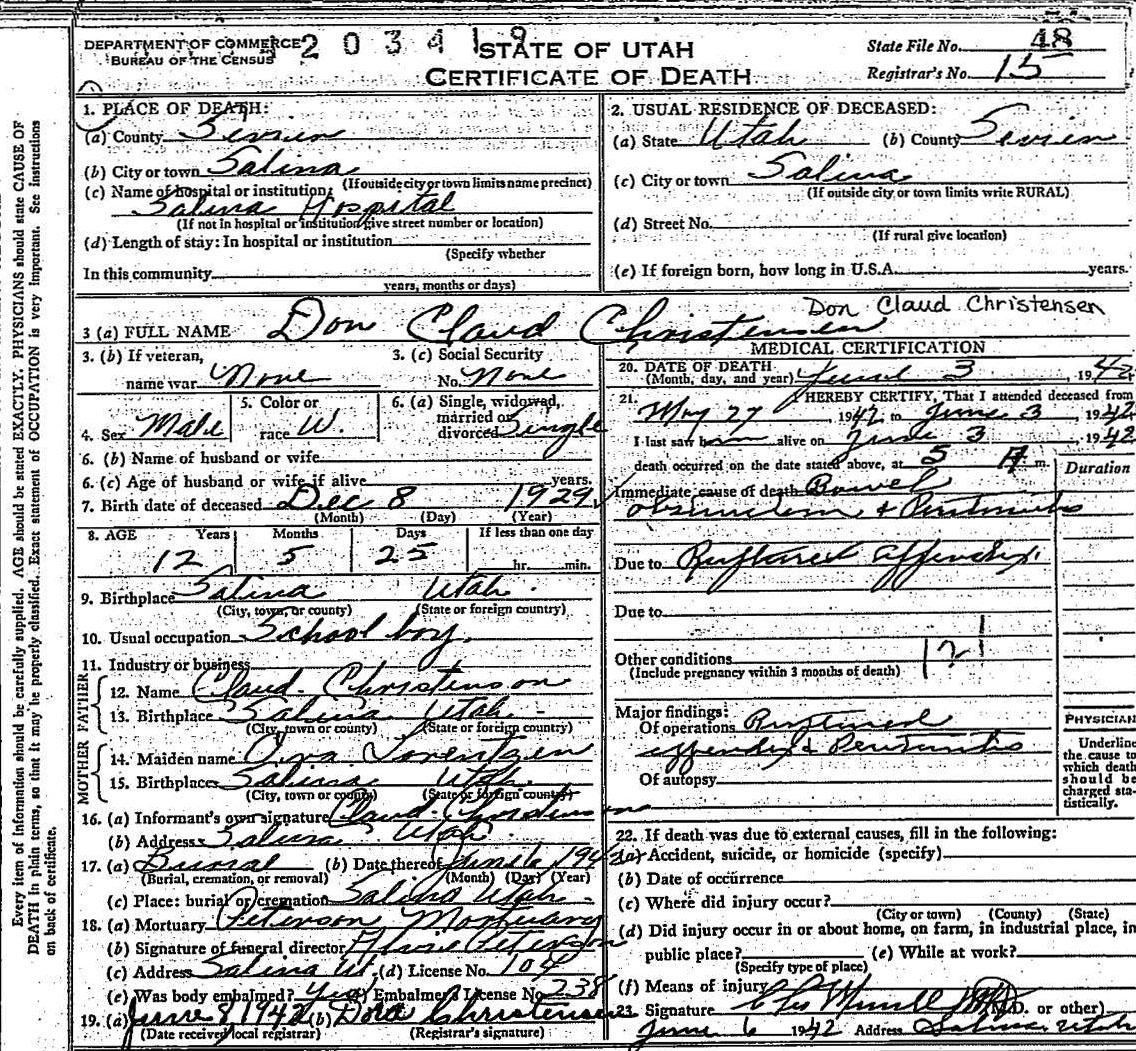 Every item of information should be carefully supplied. AGE should be stated EXACTLY. PHYSICIANS should state CAUSE OF
DEATH in plain terms, so that it may be properly classified. Exact statement of OCCUPATION is very important. See Instructions
on back of certificate.
DEPARTMENT OF COMMERCE
BUREAU OF THE CENSUS
STATE OF UTAH
CERTIFICATE OF DEATH
State File No. 48
Registrar's No. 15
1. PLACE OF DEATH:
(a) County Sevier
(b) City or town Salina
(If outside city or town limits name precinct)
(c) Name of hospital or institution:
Salina Hospital
(If not in hospital or institution give street number or location)
(d) Length of stay: In hospital or institution
(Specify whether
In this community
years, months or days)
2. USUAL RESIDENCE OF DECEASED:
(a) State Utah (b) County Sevier
(c) City or town Salina
(If outside city or town limits write RURAL)
(d) Street No.
(If rural give location)
(e) If foreign born, how long in U.S.A. years.
3 (a) FULL NAME Don Claud Christensen
Don Claud Christensen
3. (b) If veteran,
name war None
3. (c) Social Security
No. None
4. Sex Male
5. Color or
race W.
6. (a) Single, widowed,
married or
divorced Single
6. (b) Name of husband or wife
6. (c) Age of husband or wife if alive years.
7. Birth date of deceased Dec 8 1929
(Month) (Day) (Year)
8. AGE Years Months Days If less than one day
12 5 25 hr. min.
9. Birthplace Salina Utah.
(City, town, or county) (State or foreign country)
10. Usual occupation School boy.
11. Industry or business
FATHER
12. Name Claud Christenson
13. Birthplace Salina Utah
(City, town or county) (State or foreign country)
MOTHER
14. Maiden name Ova Lorentzen
15. Birthplace Salina Utah.
(City, town or county) (State or foreign country)
16. (a) Informant's own signature Claud Christensen
(b) Address Salina Utah.
17. (a) Burial (b) Date thereof June 6 1942
(Burial, cremation, or removal) (Month) (Day) (Year)
(c) Place: burial or cremation Salina Utah
18. (a) Mortuary Peterson Mortuary
(b) Signature of funeral director Peterson
(c) Address Salina Ut. (d) License No. 104
(e) Was body embalmed? Yes (f) Embalmer's License No. 238
19. (a) June 8 1942 (b) Dora Christensen
(Date received local registrar) (Registrar's signature)
MEDICAL CERTIFICATION
20. DATE OF DEATH
(Month, day, and year) June 3, 1942
21. I HEREBY CERTIFY, That I attended deceased from
May 27, 1942 to June 3, 1942
I last saw him alive on June 3, 1942
death occurred on the date stated above, at 5 A m.
Duration
Immediate cause of death Bowel
obstruction & Peritonitis
Due to Ruptured appendix.
Due to
Other conditions
(Include pregnancy within 3 months of death)
121
Major findings:
Of operations Ruptured
appendix & Peritonitis
Of autopsy
PHYSICIAN
Underline
the cause to
which death
should be
charged sta-
tistically.
22. If death was due to external causes, fill in the following:
(a) Accident, suicide, or homicide (specify)
(b) Date of occurrence
(c) Where did injury occur?
(City or town) (County) (State)
(d) Did injury occur in or about home, on farm, in industrial place, in
public place? (e) While at work?
(Specify type of place)
(f) Means of injury
23. Signature (M.D. or other)
June 6 1942 Address Salina Utah